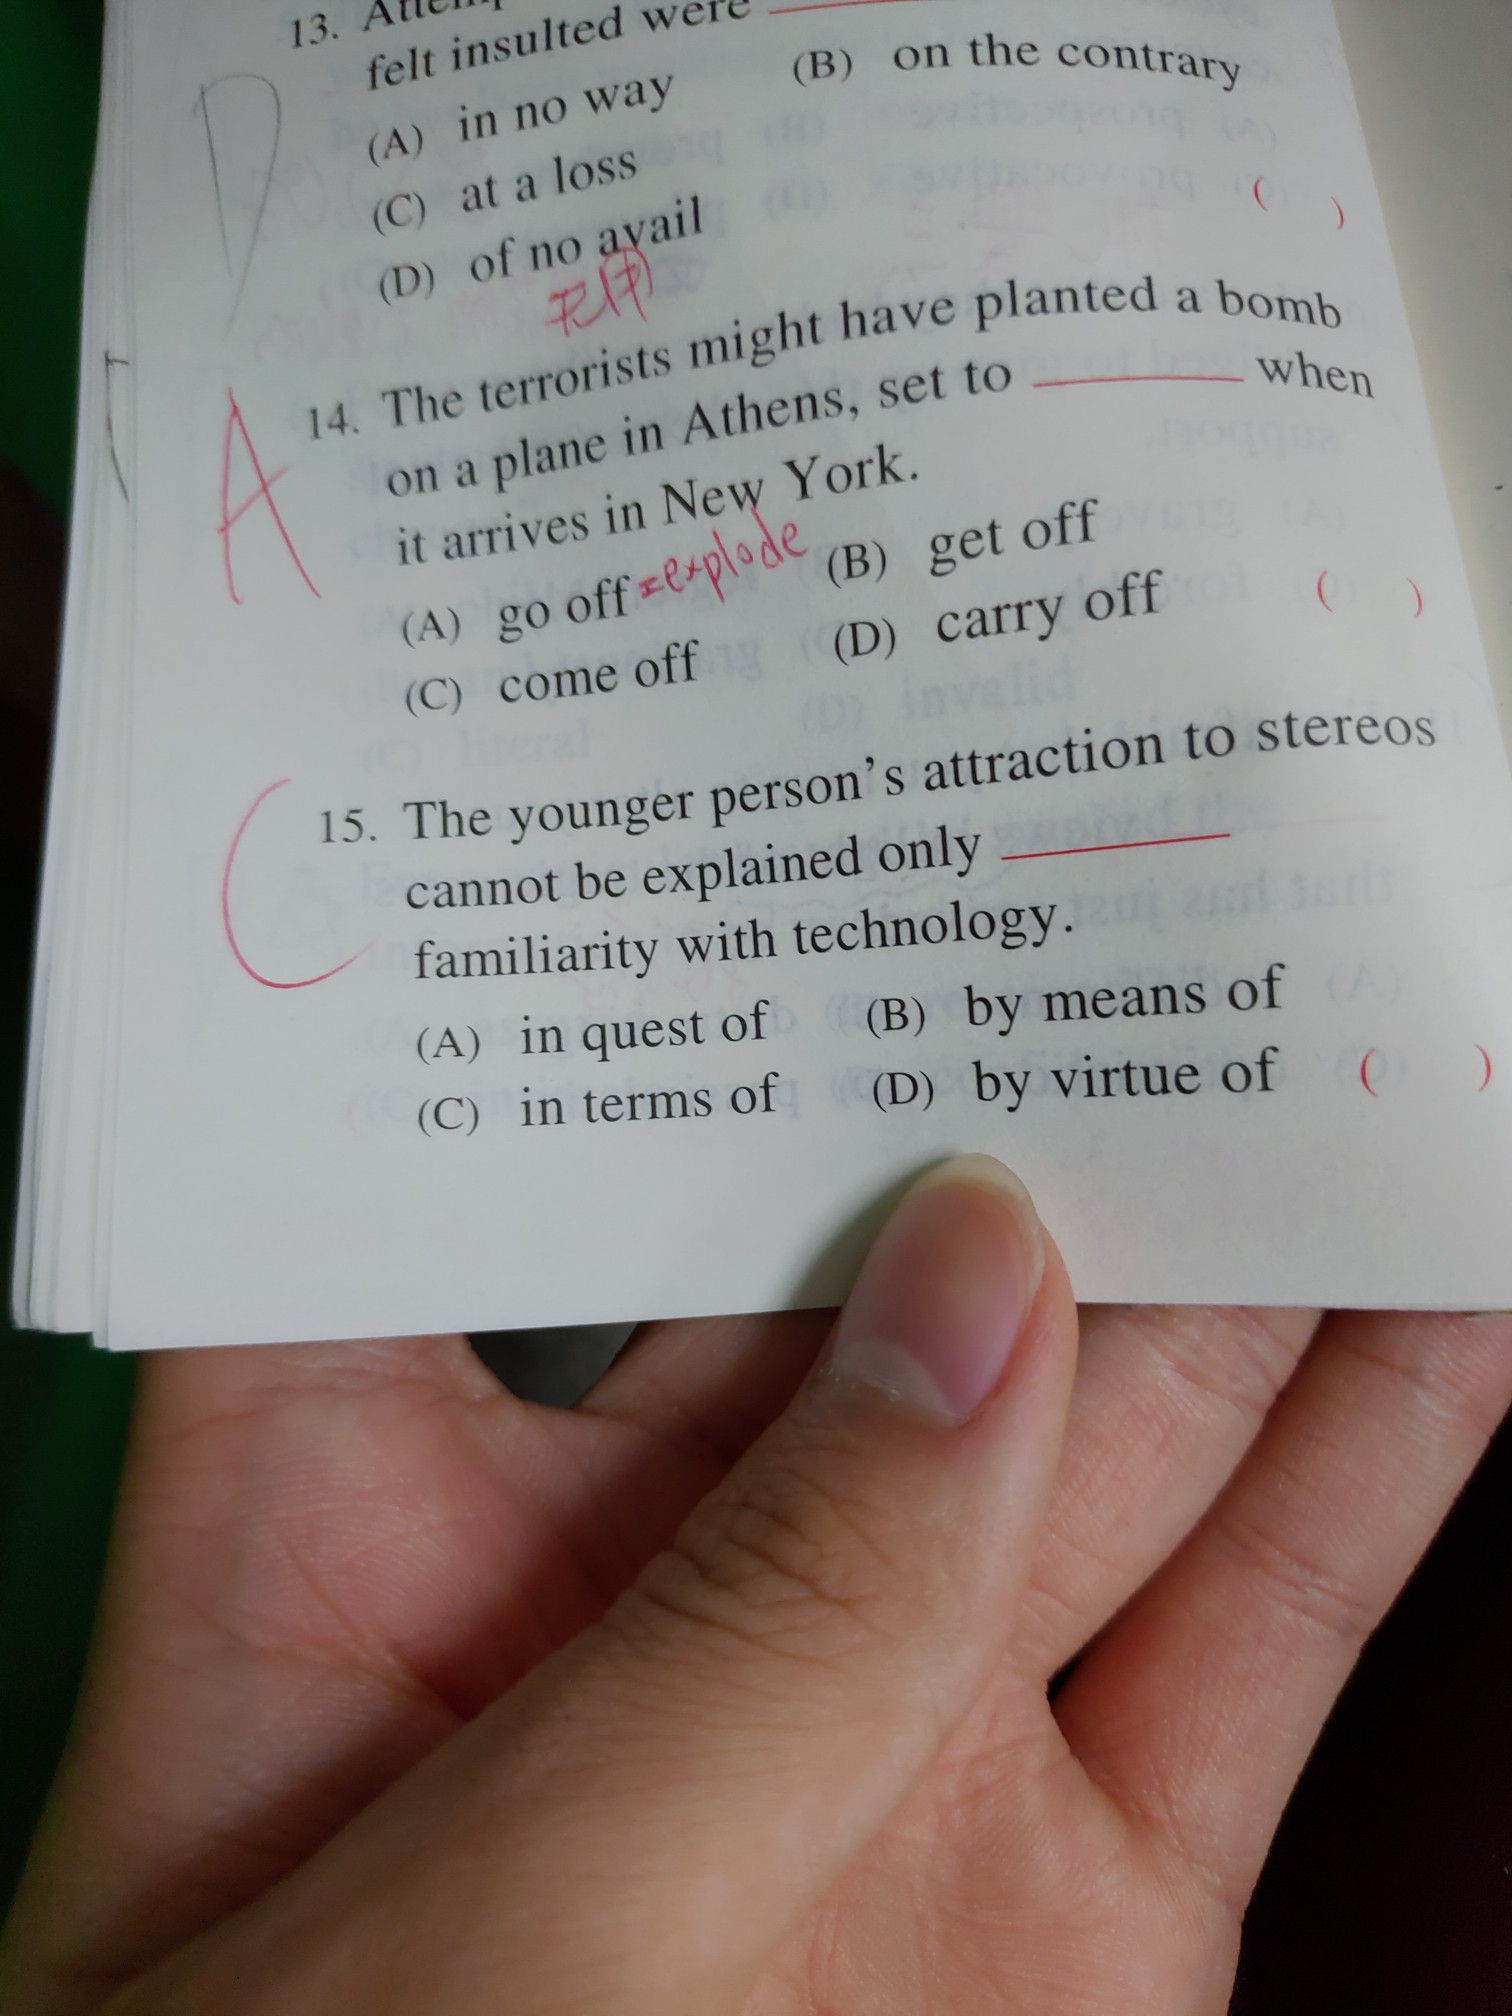 13.
felt insulted were
(A) in no way (B) on the contrary
(C) at a loss
(D) of no avail ( )
D
14. The terrorists might have planted a bomb
on a plane in Athens, set to ________ when
it arrives in New York.
A
(A) go off =explode (B) get off
(C) come off (D) carry off ( )
15. The younger person's attraction to stereos
cannot be explained only ________
familiarity with technology.
C
(A) in quest of (B) by means of
(C) in terms of (D) by virtue of ( )